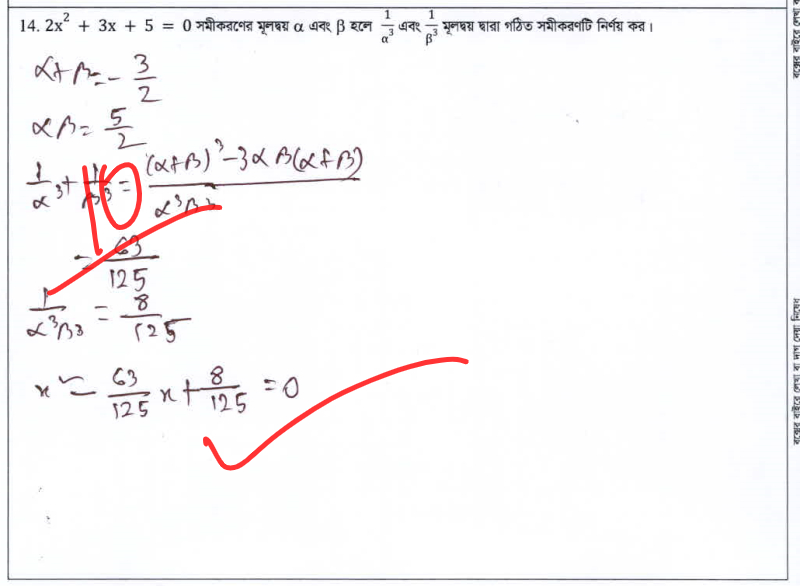 14. 2x² + 3x + 5 = 0 সমীকরণের মূলদ্বয় α এবং β হলে 1/α³ এবং 1/β³ মূলদ্বয় দ্বারা গঠিত সমীকরণটি নির্ণয় কর।
α+β = - 3/2
αβ = 5/2
1/α³ + 1/β³ = (α+β)³ - 3αβ(α+β) / α³β³
10
= 63/125
1/α³β³ = 8/125
x² - 63/125 x + 8/125 = 0
বক্সের বাইরে লেখা বা দাগ দেয়া নিষেধ